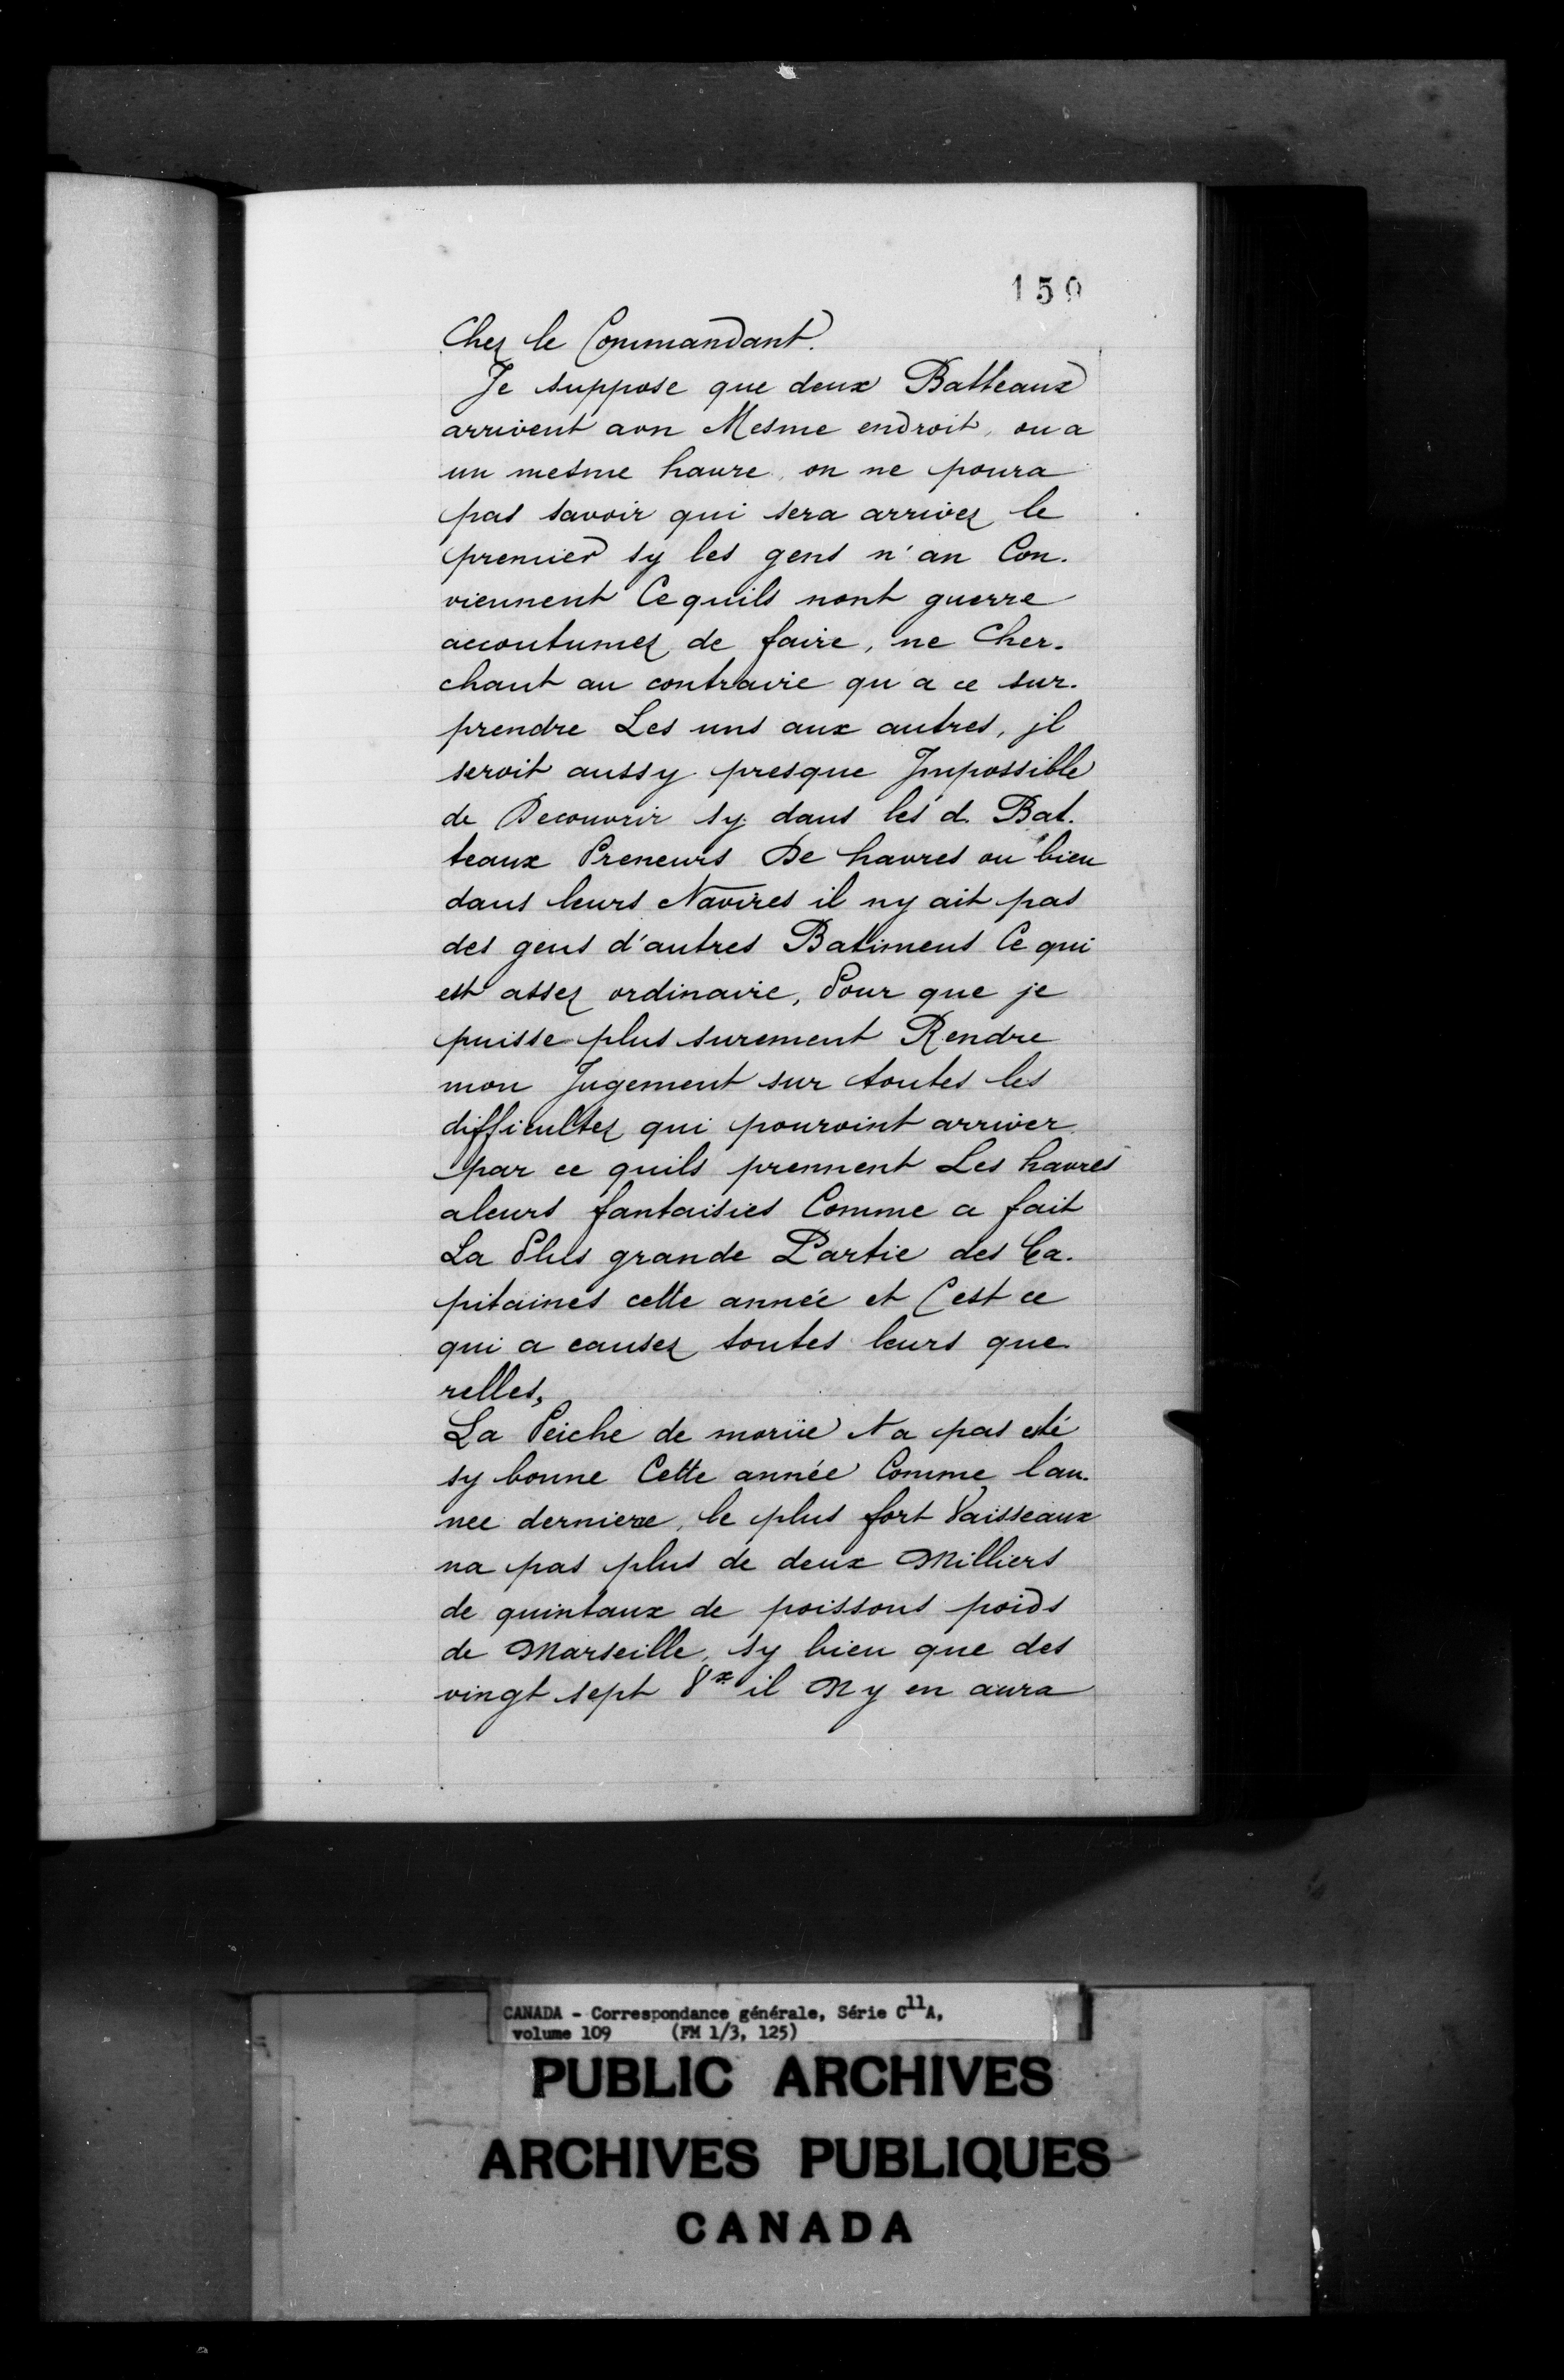 150
Chez le Commandant.
Je suppose que deux Batteaux
arrivent aun Mesme endroit, ou a
un mesme havre, on ne poura
pas savoir qui sera arrivez le
premier sy les gens n'an Con.
viennent Cequils nont guerre
accoutumez de faire, ne Cher.
chant au contraire qu'a ce sur.
prendre Les uns aux autres, jl
seroit aussy presque Jmpossible
de Decouvrir sy dans les d. Bat.
teaux Preneurs De havres ou bien
dans leurs Navires il ny ait pas
des gens d'autres Batimens Ce qui
est assez ordinaire, Pour que je
puisse plus surement Rendre
mon Jugement sur toutes les
difficultez qui pouroint arriver
par ce quils prennent Les havres
aleurs fantaisies Comme a fait
La Plus grande Partie des Ca.
pitaines cette année et C'est ce
qui a causez toutes leurs que
relles,
La Peiche de moriie Na pas esté
sy bonne Cette année Comme lan.
nee derniere, le plus fort Vaisseaux
na pas plus de deux Milliers
de quintaux de poissons poids
de Marseille, sy bien que des
vingt sept Vx il Ny en aura
CANADA - Correspondance générale, Série C11A,
volume 109 (FM 1/3, 125)
PUBLIC ARCHIVES
ARCHIVES PUBLIQUES
CANADA